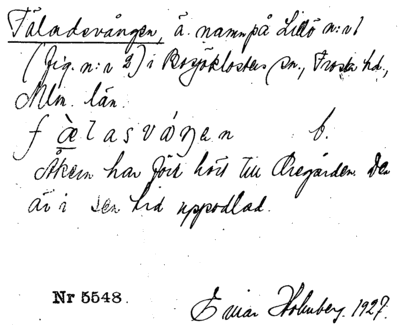 Fäladsvången, å. namn på Lillö n:r 1
(fig. n:r 3) i Bosjöklosters sn., Frosta hd.,
Mlm. län.
fàlasváŋen b.
Åkern har förr hört till Öregården. Den
är i sen tid uppodlad.
Nr 5548.
Einar Holmberg. 1927.